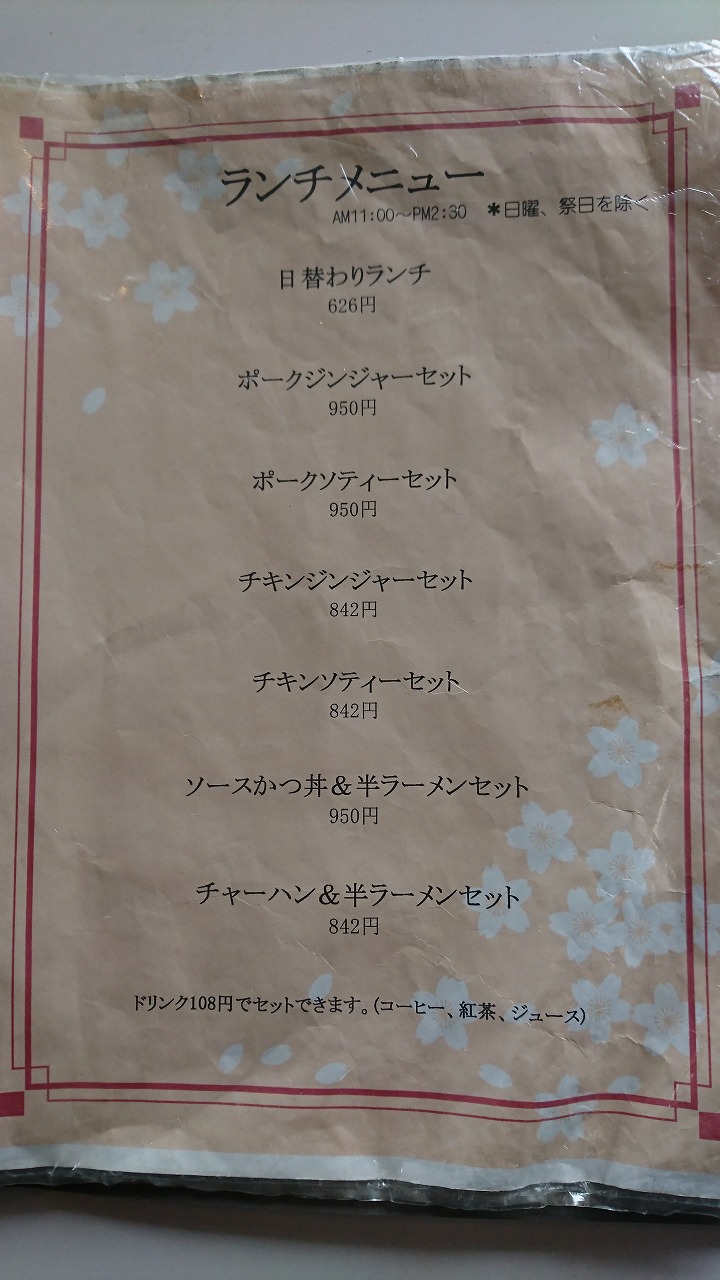 ランチメニュー
AM11:00～PM2:30 ＊日曜、祭日を除く
日替わりランチ
626円
ポークジンジャーセット
950円
ポークソティーセット
950円
チキンジンジャーセット
842円
チキンソティーセット
842円
ソースかつ丼＆半ラーメンセット
950円
チャーハン＆半ラーメンセット
842円
ドリンク108円でセットできます。(コーヒー、紅茶、ジュース)